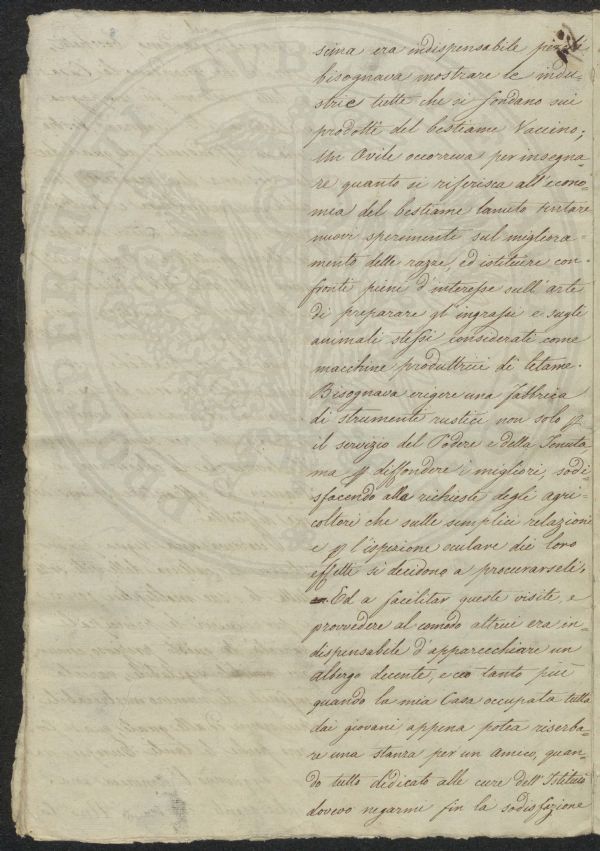 scina era indispensabile
bisognava mostrare le indu=
strie tutte che si fondano sui
prodotti del bestiame Vaccino;
Un Ovile occorreva per insegna=
re quanto si riferisca all'econo=
mia del bestiame lanuto tentare
nuovi sperimenti sul migliora=
mento delle razze, ed istituire con=
fronti pieni d'interesse sull'arte
di preparare gl'ingrassi e sugli
animali stessi considerati come
macchine produttrici di letame.
Bisognava erigere una fabbrica
di strumenti rustici non solo p
il servizio del Podere e della Tenuta
ma p diffondere i migliori, sodi=
sfacendo alle richieste degli agri=
coltori che sulle semplici relazioni
e p l'ispezione oculare dei loro
effetti si decidono a procurarseli.
Ed a facilitar queste visite, e
provvedere al comodo altrui era in=
dispensabile d'apparecchiare un
albergo decente, e ciò tanto più
quando la mia Casa occupata tutta
dai giovani appena potea riserba=
re una stanza per un Amico, quan=
do tutto dedicato alle cure dell'Istituto
dovevo negarmi fin la sodisfazione